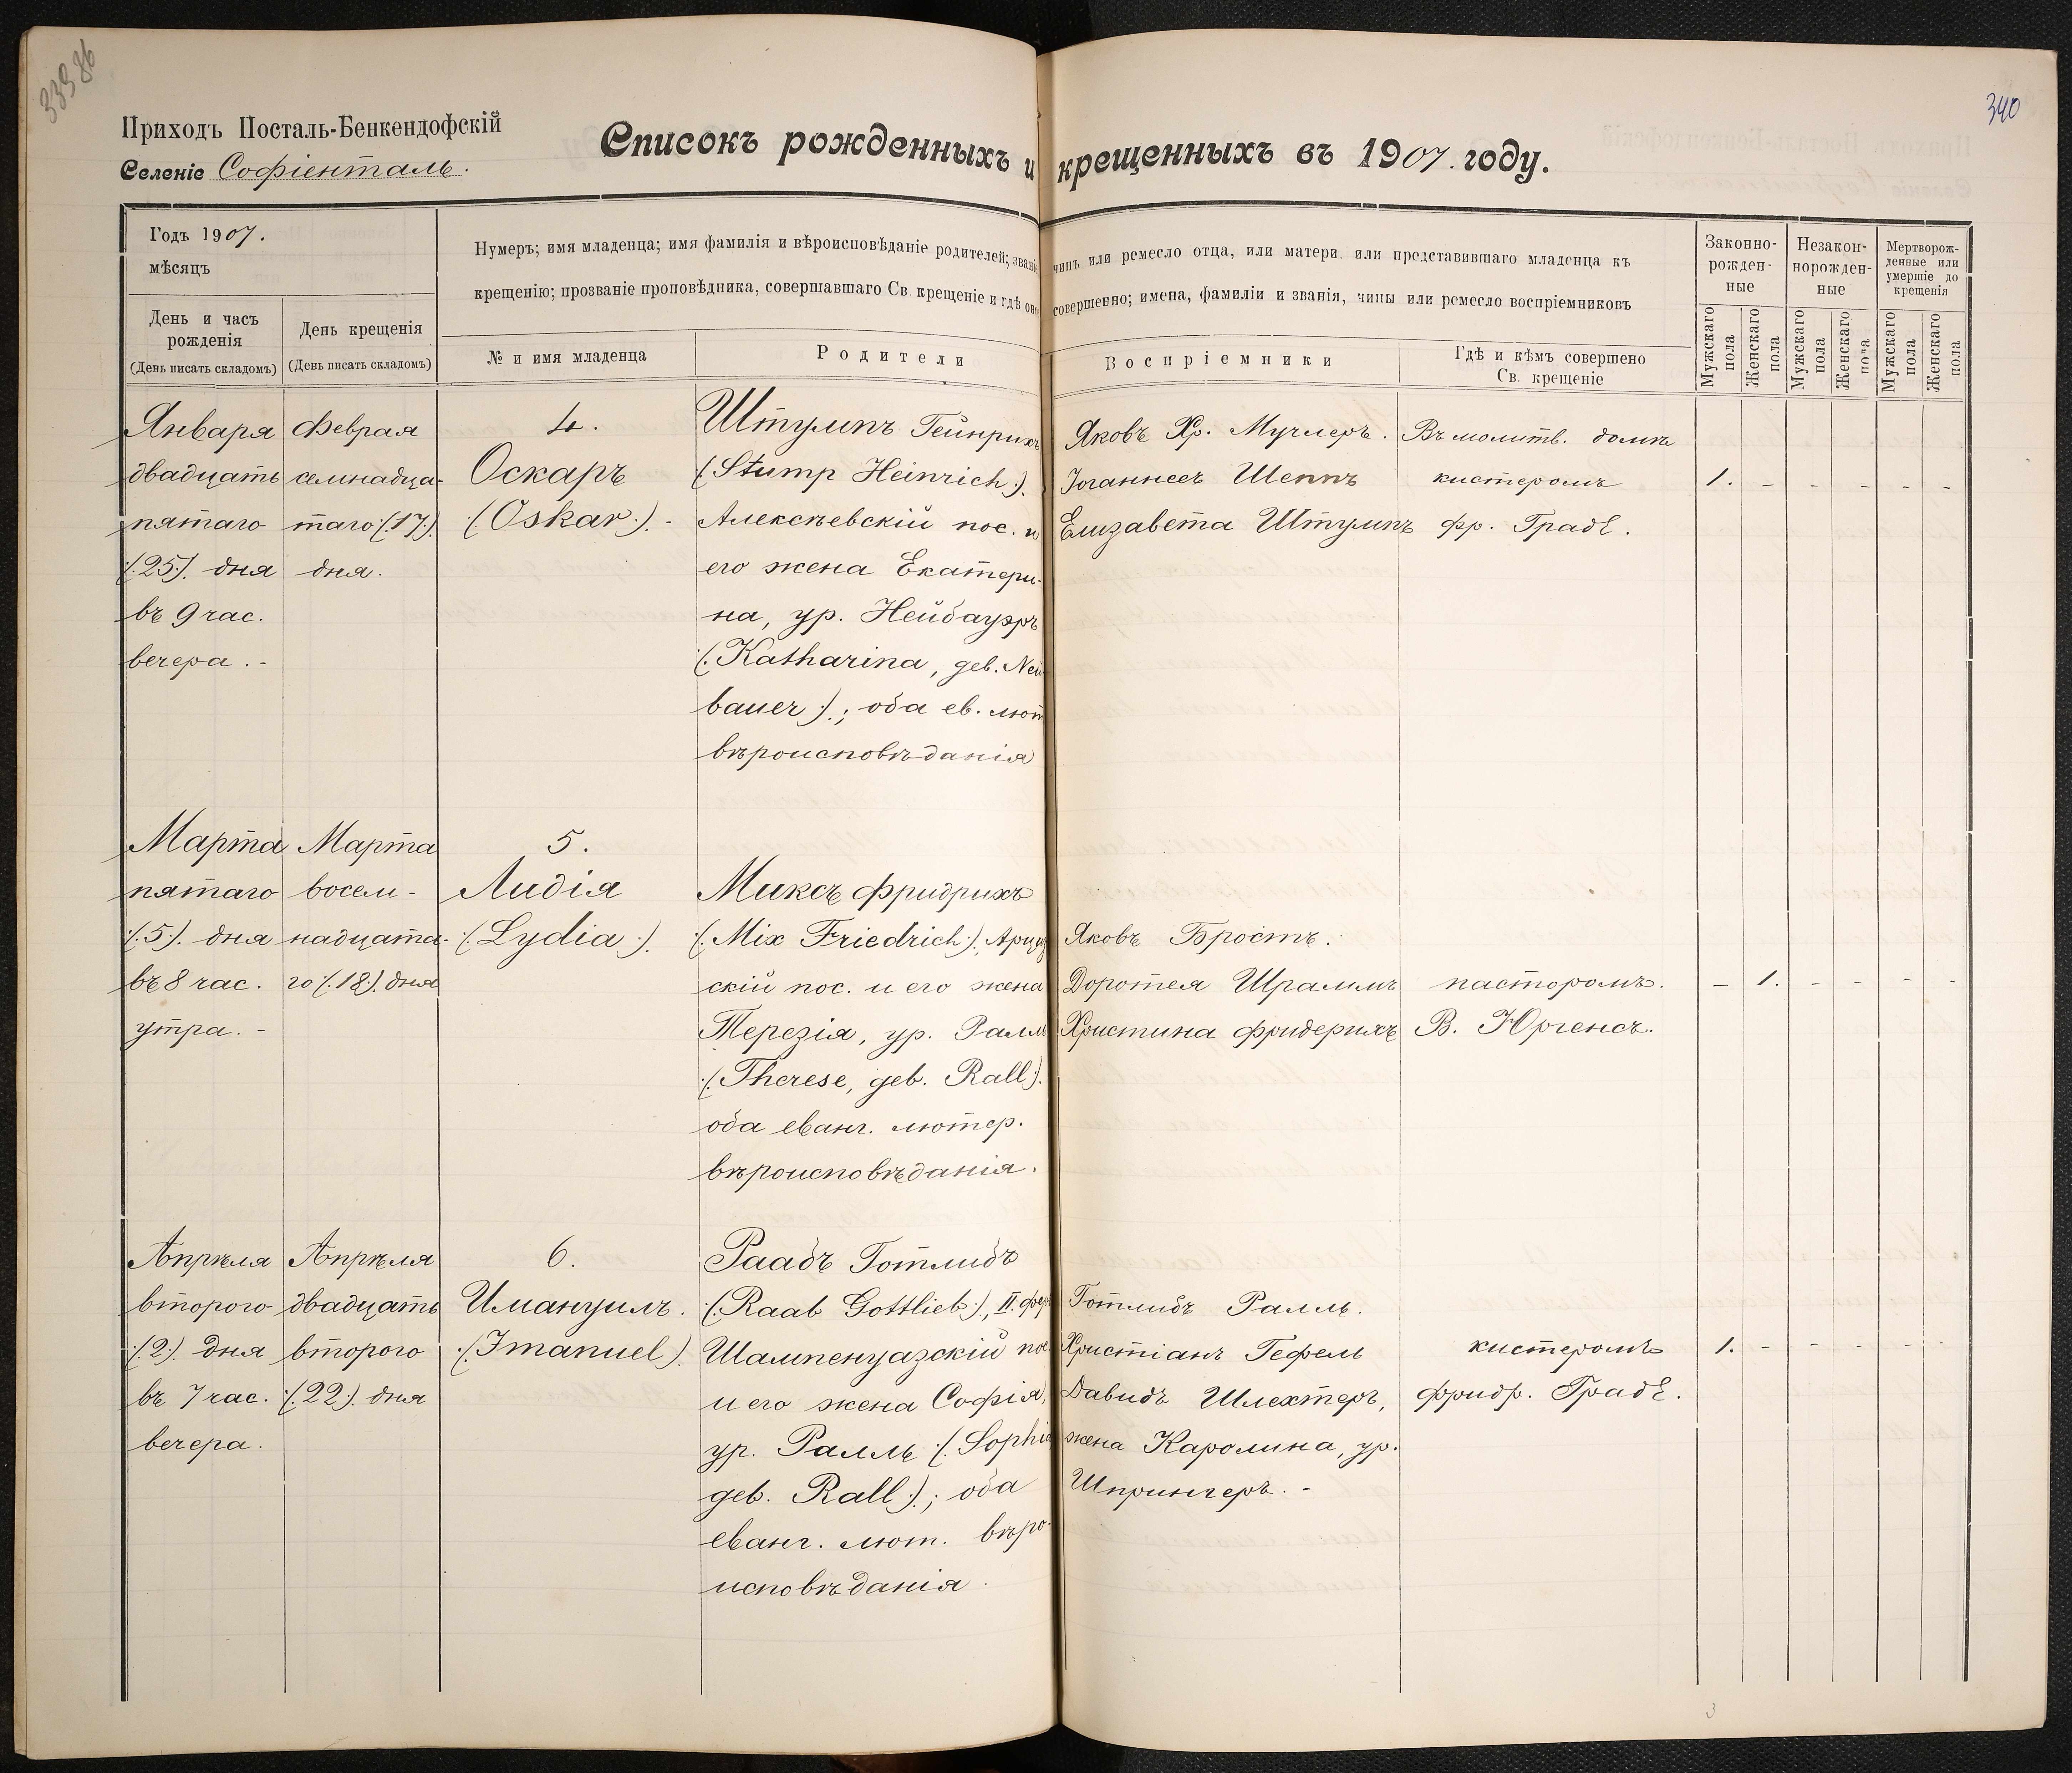 340
Приходъ Посталь-Бенкендофскій
Селеніе Софіенталь.
Списокъ рожденныхъ и крещенныхъ въ 1907. году.
Годъ 1907.
мѣсяцъ
День и часъ
рожденія
(День писать складомъ)
День крещенія
(День писать складомъ)
Нумеръ; имя младенца; имя фамилія и вѣроисповѣданіе родителей; званіе
чинъ или ремесло отца, или матери. или представившаго младенца къ
крещенію; прозваніе проповѣдника, совершавшаго Св крещеніе и гдѣ оно
совершенно; имена, фамиліи и званія, чины или ремесло воспріемниковъ
№ и имя младенца
Родители
Воспріемники
Гдѣ и кѣмъ совершено
Св. крещеніе
Законно-
рожден-
ные
Незакон-
норожден-
ные
Мертворож-
денные или
умершіе до
крещенія
Мужскаго
пола
Женскаго
пола
Мужскаго
пола
Женскаго
пола
Мужскаго
пола
Женскаго
пола
Января
двадцать
пятаго
(:25:) дня
въ 9 час.
вечера. -
Феврая
семнадца-
таго (:17:)
дня.
4.
Оскаръ
(:Oskar:). -
Штумпъ Гейнрихъ
(:Stump Heinrich:).
Алексѣевскій пос. и
его жена Екатери-
на, ур. Нейбауэръ
(:Katharina, geb. Neu
bauer:).; оба ев. лют
вѣроисповѣданія
Яковъ Хр. Мучлеръ.
Іоганнесъ Шеппъ
Елизавета Штумпъ
Въ молитв. домѣ
кистеромъ
фр. Граде.
1. - - - - -
Марта
пятаго
(:5:). дня
въ 8 час.
утра. -
Марта
восем-
надцата-
го (:18:). дня
5.
Лидія
(:Lydia:).
Миксъ Фридрихъ
(:Mix Friedrich:). Арциз
скій пос. и его жена
Терезія, ур. Ралль
(:Therese, geb. Rall:).
оба еванг. лютер.
вѣроисповѣданія.
Яковъ Бростъ.
Доротея Шраммъ
Христина Фридерихъ
пасторомъ.
В. Юргенсъ.
- 1. - - - -
Апрѣля
второго
(:2:). дня
въ 7 час.
вечера.
Апрѣля
двадцать
второго
(:22:). дня
6.
Имануилъ.
(:Imanuel:).
Раабъ Готлибъ
(:Raab Gottlieb:)., II. фер
Шампенуазскій пос
и его жена Софія,
ур. Ралль (:Sophia
geb. Rall:).; оба
еванг. лют. вѣро-
исповѣданія.
Готлибъ Ралль.
Христіанъ Гефель
Давидъ Шлехтеръ,
жена Каролина, ур.
Шпрингеръ. -
кистеромъ
Фридр. Граде.
1. - - - - -
3